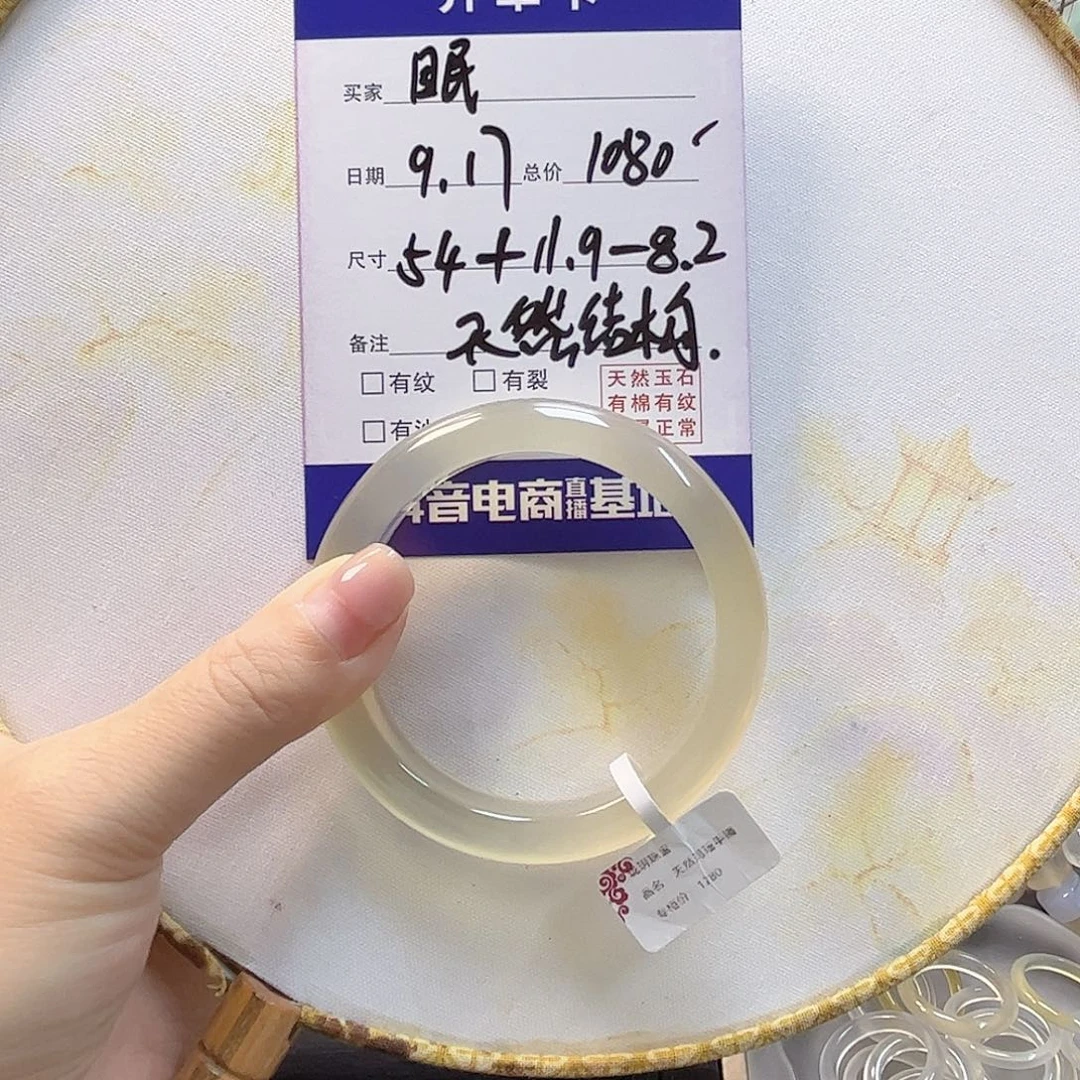 买家 眠
日期 9.17 总价 1080
尺寸 54+11.9-8.2
备注 天然结构.
□有纹 □有裂
□有
天然玉石
有棉有纹
正常
音电商直播基地
品名 天然
专柜价 1180